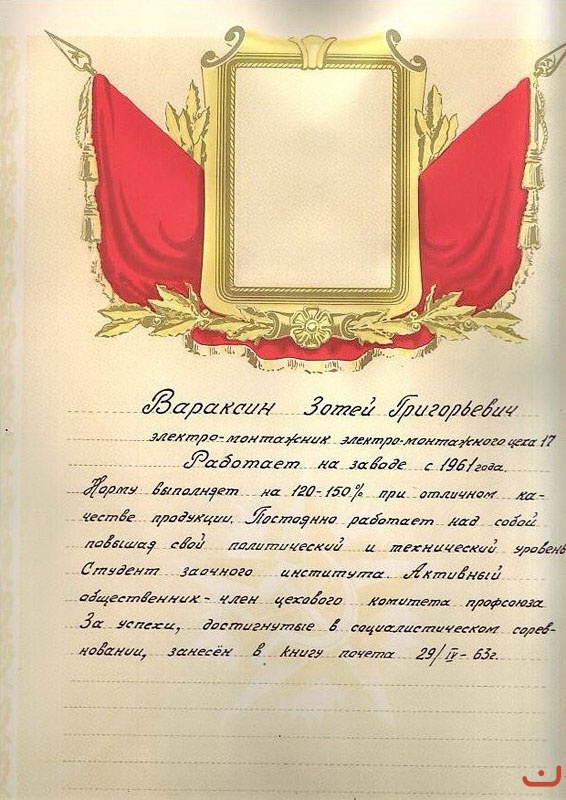 Вараксин Зотей Григорьевич
электро-монтажник электро-монтажного цеха 17
Работает на заводе с 1961 года.
Норму выполняет на 120-150% при отличном ка-
честве продукции. Постоянно работает над собой
повышая свой политический и технический уровень
Студент заочного института. Активный
общественник - член цехового комитета профсоюза
За успехи, достигнутые в социалистическом сорев-
новании, занесён в книгу почета 29/IV - 63г.